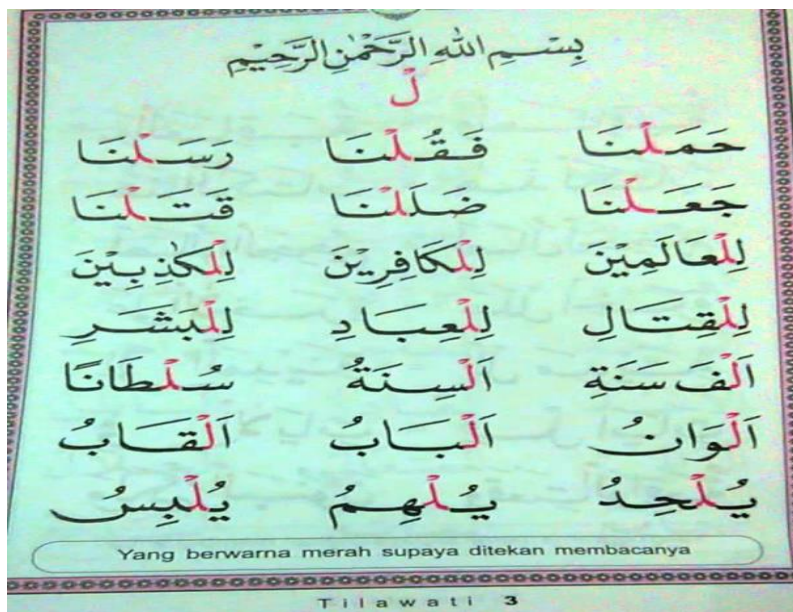 بِسْمِ اللهِ الرَّحْمٰنِ الرَّحِيْمِ
لْ
حَمَلْنَا فَقُلْنَا رَسَلْنَا
جَعَلْنَا ضَلَلْنَا قَتَلْنَا
لِلْعَالَمِيْنَ لِلْكَافِرِيْنَ لِلْكٰذِبِيْنَ
لِلْقِتَالِ لِلْعِبَادِ لِلْبَشَرِ
اَلْفَ سَنَةٍ اَلْسِنَةُ سُلْطَانًا
اَلْوَانُ اَلْبَابُ اَلْقَابُ
يُلْحِدُ يُلْهِمُ يُلْبِسُ
Yang berwarna merah supaya ditekan membacanya
Tilawati 3